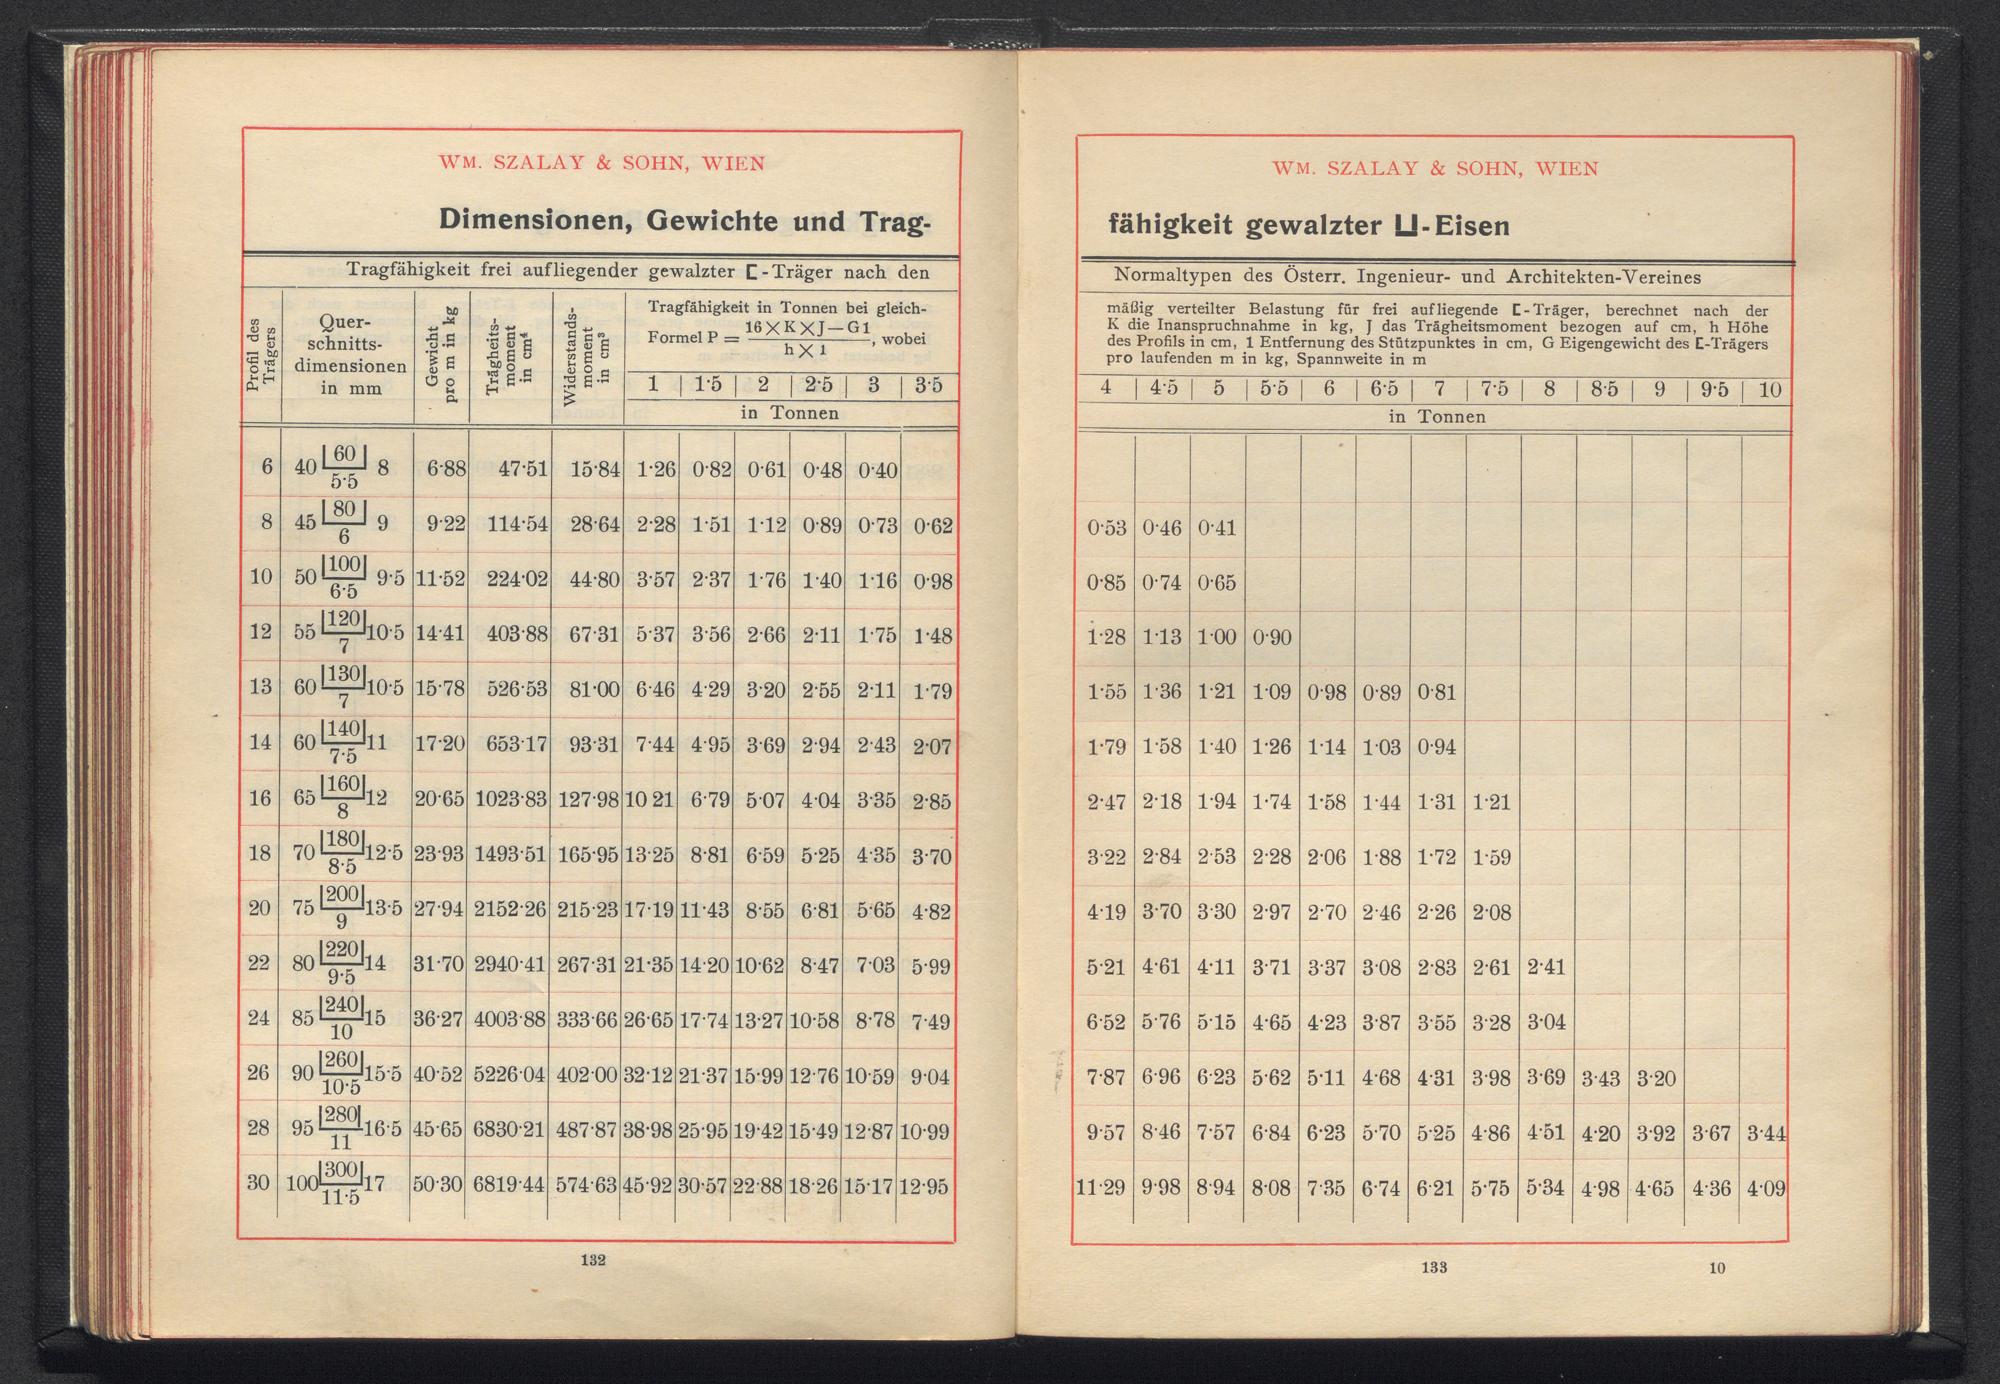 WM. SZALAY & SOHN, WIEN
Dimensionen, Gewichte und Trag-
Tragfähigkeit frei aufliegender gewalzter [-Träger nach den
Profil des Trägers
Quer-
schnitts-
dimensionen
in mm
Gewicht pro m in kg
Trägheits-moment in cm⁴
Widerstands-moment in cm³
Tragfähigkeit in Tonnen bei gleich-
Formel P = 16×K×J—G1 / h×1, wobei
1 | 1·5 | 2 | 2·5 | 3 | 3·5
in Tonnen
6 40 60 8 5·5 6·88 47·51 15·84 1·26 0·82 0·61 0·48 0·40
8 45 80 9 6 9·22 114·54 28·64 2·28 1·51 1·12 0·89 0·73 0·62
10 50 100 9·5 6·5 11·52 224·02 44·80 3·57 2·37 1·76 1·40 1·16 0·98
12 55 120 10·5 7 14·41 403·88 67·31 5·37 3·56 2·66 2·11 1·75 1·48
13 60 130 10·5 7 15·78 526·53 81·00 6·46 4·29 3·20 2·55 2·11 1·79
14 60 140 11 7·5 17·20 653·17 93·31 7·44 4·95 3·69 2·94 2·43 2·07
16 65 160 12 8 20·65 1023·83 127·98 10 21 6·79 5·07 4·04 3·35 2·85
18 70 180 12·5 8·5 23·93 1493·51 165·95 13·25 8·81 6·59 5·25 4·35 3·70
20 75 200 13·5 9 27·94 2152·26 215·23 17·19 11·43 8·55 6·81 5·65 4·82
22 80 220 14 9·5 31·70 2940·41 267·31 21·35 14·20 10·62 8·47 7·03 5·99
24 85 240 15 10 36·27 4003·88 333·66 26·65 17·74 13·27 10·58 8·78 7·49
26 90 260 15·5 10·5 40·52 5226·04 402·00 32·12 21·37 15·99 12·76 10·59 9·04
28 95 280 16·5 11 45·65 6830·21 487·87 38·98 25·95 19·42 15·49 12·87 10·99
30 100 300 17 11·5 50·30 6819·44 574·63 45·92 30·57 22·88 18·26 15·17 12·95
132
WM. SZALAY & SOHN, WIEN
fähigkeit gewalzter ⊔-Eisen
Normaltypen des Österr. Ingenieur- und Architekten-Vereines
mäßig verteilter Belastung für frei aufliegende [-Träger, berechnet nach der
K die Inanspruchnahme in kg, J das Trägheitsmoment bezogen auf cm, h Höhe
des Profils in cm, 1 Entfernung des Stützpunktes in cm, G Eigengewicht des [-Trägers
pro laufenden m in kg, Spannweite in m
4 | 4·5 | 5 | 5·5 | 6 | 6·5 | 7 | 7·5 | 8 | 8·5 | 9 | 9·5 | 10
in Tonnen
0·53 0·46 0·41
0·85 0·74 0·65
1·28 1·13 1·00 0·90
1·55 1·36 1·21 1·09 0·98 0·89 0·81
1·79 1·58 1·40 1·26 1·14 1·03 0·94
2·47 2·18 1·94 1·74 1·58 1·44 1·31 1·21
3·22 2·84 2·53 2·28 2·06 1·88 1·72 1·59
4·19 3·70 3·30 2·97 2·70 2·46 2·26 2·08
5·21 4·61 4·11 3·71 3·37 3·08 2·83 2·61 2·41
6·52 5·76 5·15 4·65 4·23 3·87 3·55 3·28 3·04
7·87 6·96 6·23 5·62 5·11 4·68 4·31 3·98 3·69 3·43 3·20
9·57 8·46 7·57 6·84 6·23 5·70 5·25 4·86 4·51 4·20 3·92 3·67 3·44
11·29 9·98 8·94 8·08 7·35 6·74 6·21 5·75 5·34 4·98 4·65 4·36 4·09
133
10